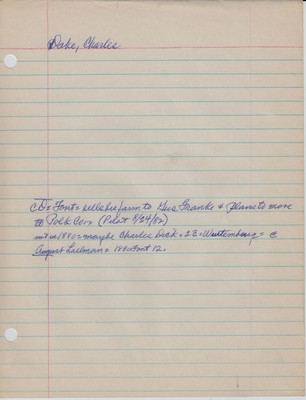 Deke, Charles
CD = Font = sells his farm to Gus Franke & plans to move
to Polk Con. (Pilot 8/24/82)
not in 1880 = maybe Charles Deck = 23 = Wurtemburg = c
August Lallman = 180 Font 12.